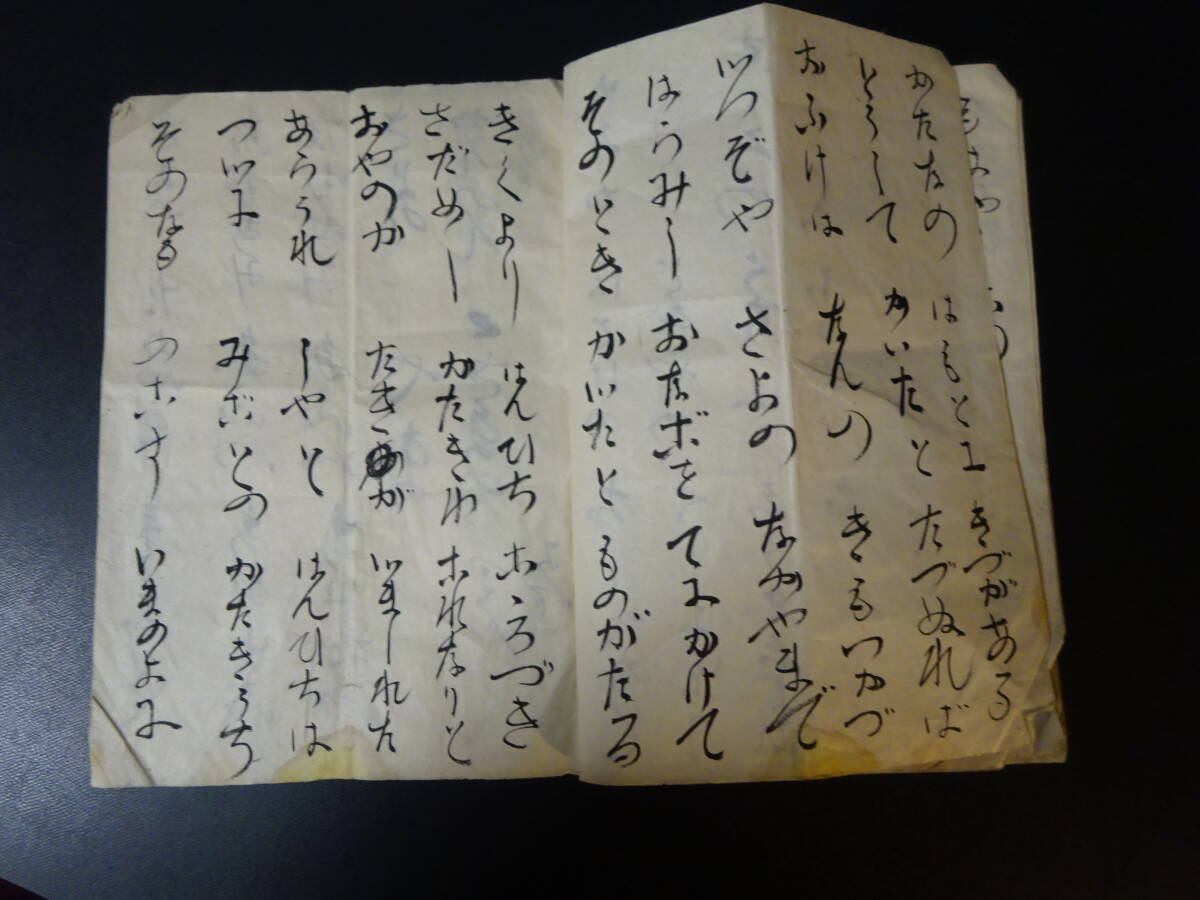 かたなの はもとに きづがある
どうして かいたと たづぬれば
おふけは なんの きもつかづ
いつぞや さよの なかやまで
はらみし おなごを てにかけて
そのとき かいたと ものがたる
きくより はんひち こころづき
さだめし かたきわ これなりと
おやのか たきが いましれた
あらうれ しやと はんひちは
ついに みごとの かたきうち
そのなも のこす いまのよに